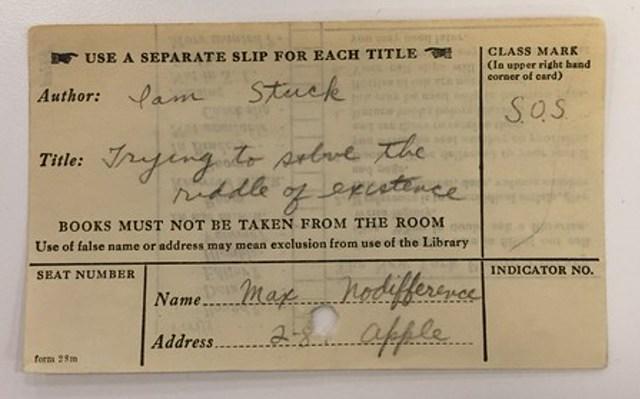 USE A SEPARATE SLIP FOR EACH TITLE
CLASS MARK
(In upper right hand
corner of card)
S.O.S.
Author: Iam Stuck
Title: Trying to solve the
riddle of existence
BOOKS MUST NOT BE TAKEN FROM THE ROOM
Use of false name or address may mean exclusion from use of the Library
SEAT NUMBER
INDICATOR NO.
Name Max Nodifference
Address Apple
form 28m